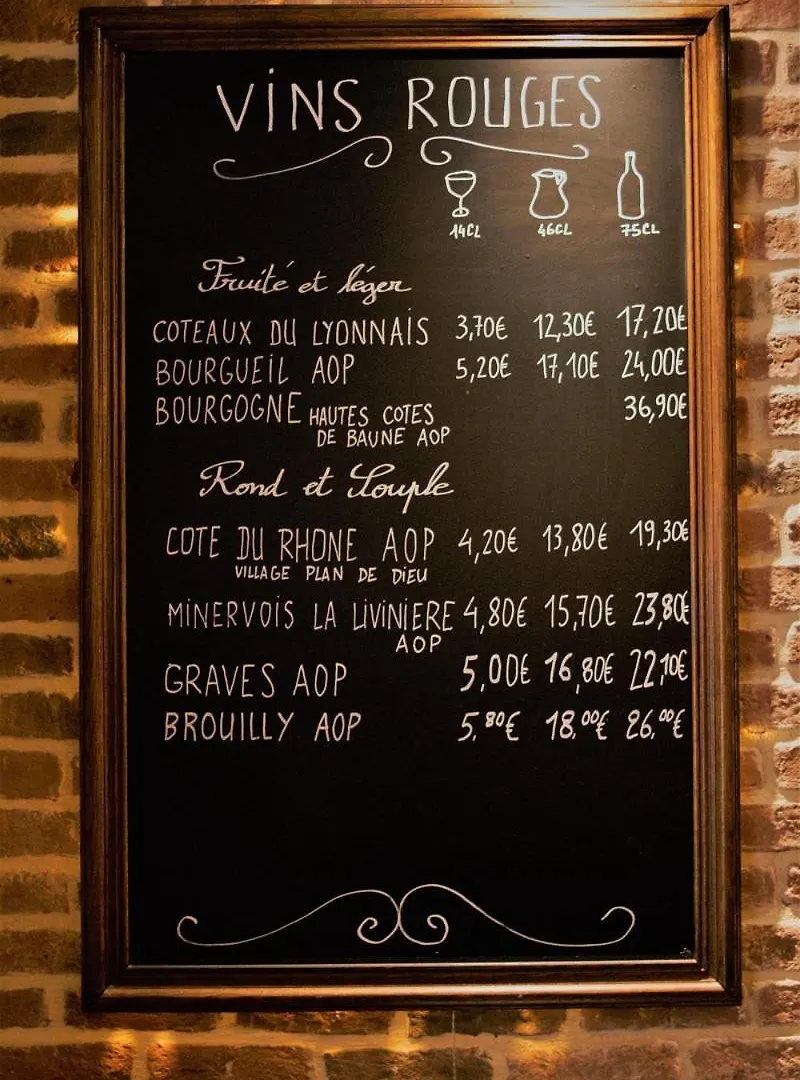 VINS ROUGES
14CL 46CL 75CL
Fruité et léger
COTEAUX DU LYONNAIS 3,70€ 12,30€ 17,20€
BOURGUEIL AOP 5,20€ 17,10€ 24,00€
BOURGOGNE HAUTES COTES 36,90€
DE BAUNE AOP
Rond et Souple
COTE DU RHONE AOP 4,20€ 13,80€ 19,30€
VILLAGE PLAN DE DIEU
MINERVOIS LA LIVINIERE 4,80€ 15,70€ 23,80€
AOP
GRAVES AOP 5,00€ 16,80€ 22,10€
BROUILLY AOP 5.80€ 18.00€ 26.00€